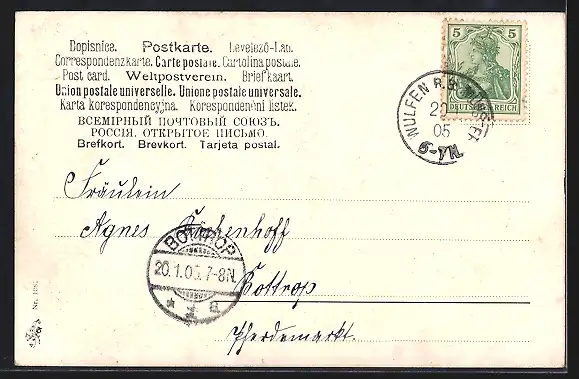 Dopisnice. Postkarte. Levelező-Lap.
Correspondenzkarte. Carte postale. Cartolina postale.
Post card. Weltpostverein. Briefkaart.
Union postale universelle. Unione postale universale.
Karta korespondencyjna. Korespondenčni listek.
ВСЕМІРНЫЙ ПОЧТОВЫЙ СОЮЗЪ.
РОССІЯ. ОТКРЫТОЕ ПИСЬМО.
Brefkort. Brevkort. Tarjeta postal.
5 5
DEUTSCHES REICH
WULFEN
20
05
6-7N.
Fräulein
Agnes Köchenhoff
BOTTROP
20.1.05.7-8N.
* 1 a
Bottrop
Pferdemarkt.
Nr.